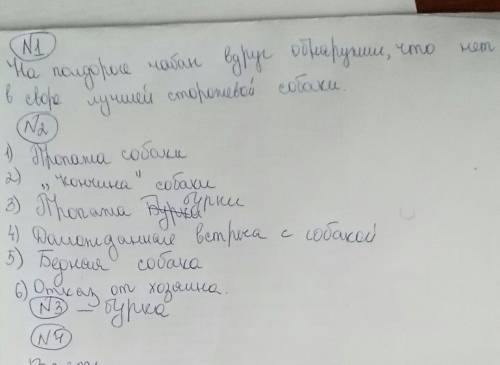 N1
На полдороге чабан вдруг обнаружил, что нет
в своре лучшей сторожевой собаки.
N2
1) Пропажа собаки
2) „кончина" собаки
3) Пропажа бурки
4) Долгожданная встреча с собакой
5) Бедная собака
6) Отказ от хозяина.
N3 – бурка
N4